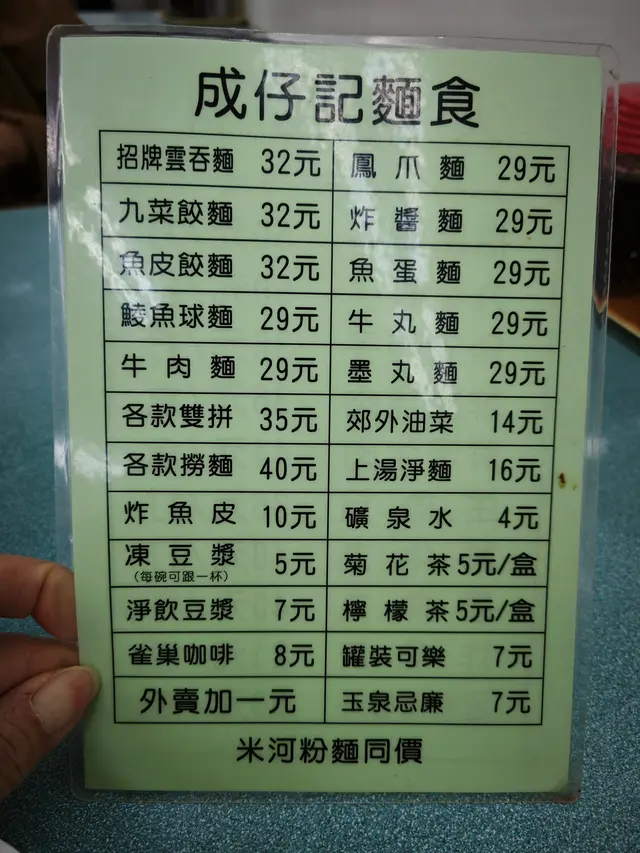 成仔記麵食
招牌雲吞麵 32元 鳳爪麵 29元
九菜餃麵 32元 炸醬麵 29元
魚皮餃麵 32元 魚蛋麵 29元
鯪魚球麵 29元 牛丸麵 29元
牛肉麵 29元 墨丸麵 29元
各款雙拼 35元 郊外油菜 14元
各款撈麵 40元 上湯淨麵 16元
炸魚皮 10元 礦泉水 4元
凍豆漿 5元 菊花茶 5元/盒
(每碗可跟一杯)
淨飲豆漿 7元 檸檬茶 5元/盒
雀巢咖啡 8元 罐裝可樂 7元
外賣加一元 玉泉忌廉 7元
米河粉麵同價